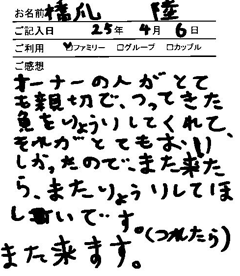 お名前 橋爪 陸
ご記入日 25年 4月 6日
ご利用 ☑ファミリー □グループ □カップル
ご感想
オーナーの人がとて
も親切で、つってきた
魚をりょうりしてくれて、
それがとてもおいし
しかったので、また来た
ら、またりょうりしてほ
しいです。
(つれたら)
また来ます。